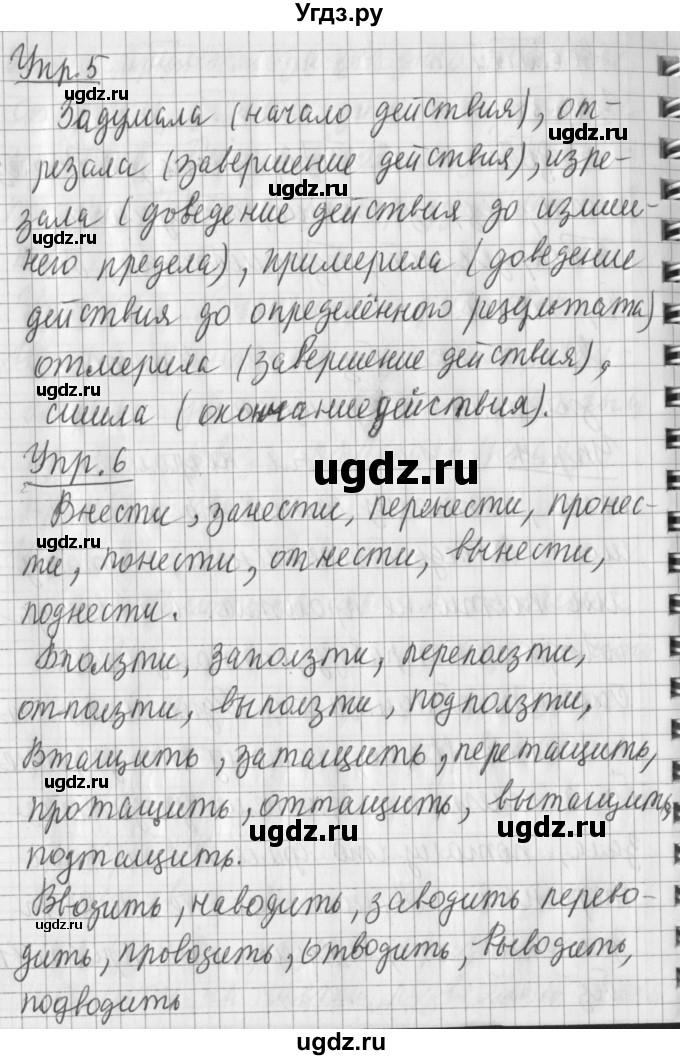 Угдз.ру
Упр. 5
Задумала (начало действия), от-
резала (завершение действия), изре-
зала (доведение действия до излиш-
него предела), примерила (доведение
действия до определённого результата)
отмерила (завершение действия),
сшила (окончание действия).
Упр. 6
Внести, занести, перенести, пронес-
ти, понести, отнести, вынести,
поднести.
Вползти, заползти, переползти,
отползти, выползти, подползти,
Втащить, затащить, перетащить,
протащить, оттащить, вытащить,
подтащить.
Вводить, наводить, заводить перево-
дить, проводить, отводить, выводить,
подводить
ugdz.ru
ugdz.ru
ugdz.ru
ugdz.ru
ugdz.ru
ugdz.ru
ugdz.ru
ugdz.ru
ugdz.ru
ugdz.ru
ugdz.ru
ugdz.ru
ugdz.ru
ugdz.ru